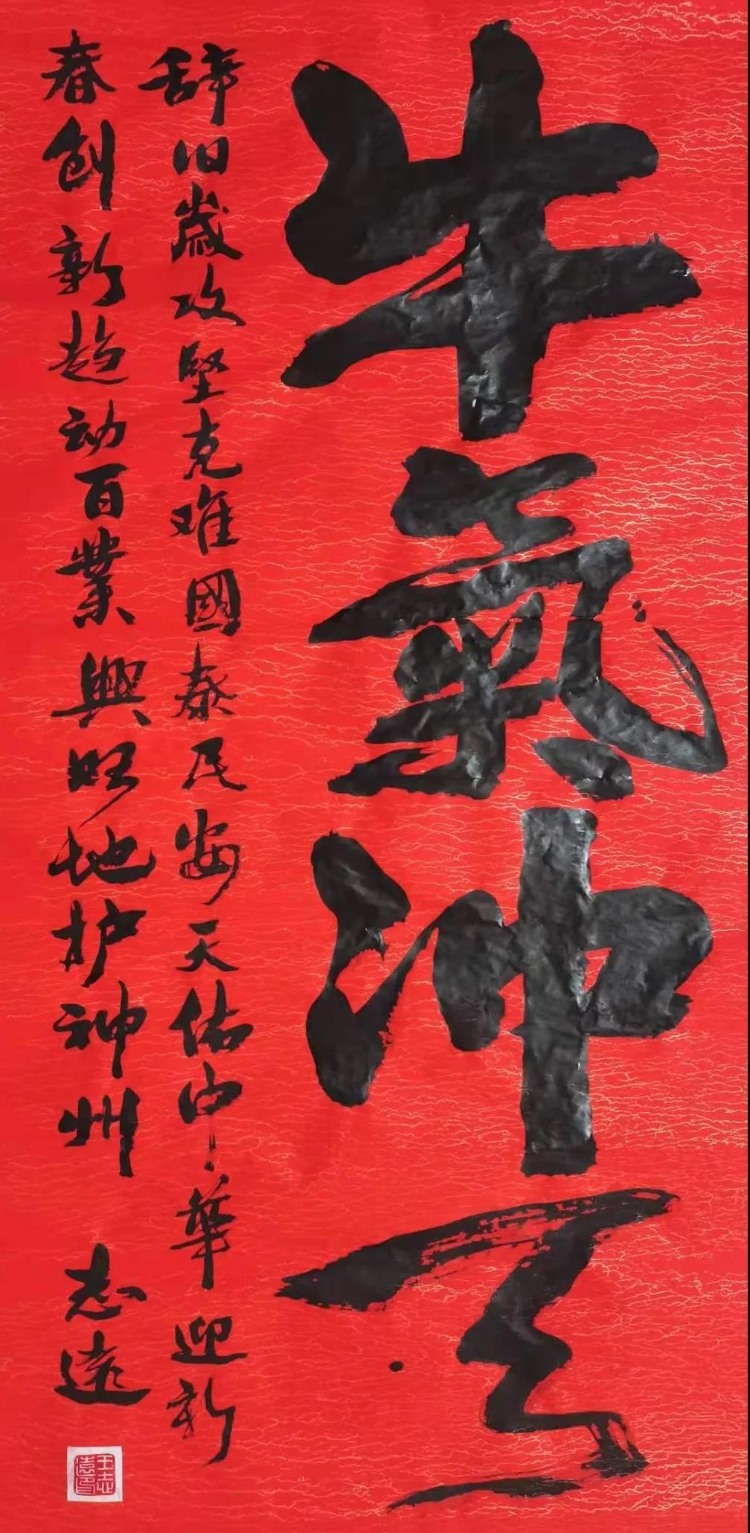 牛氣沖天
辞旧歲攻堅克难國泰民安天佑中華迎新
春創新趋动百業興旺地护神州
志遠
王志遠印